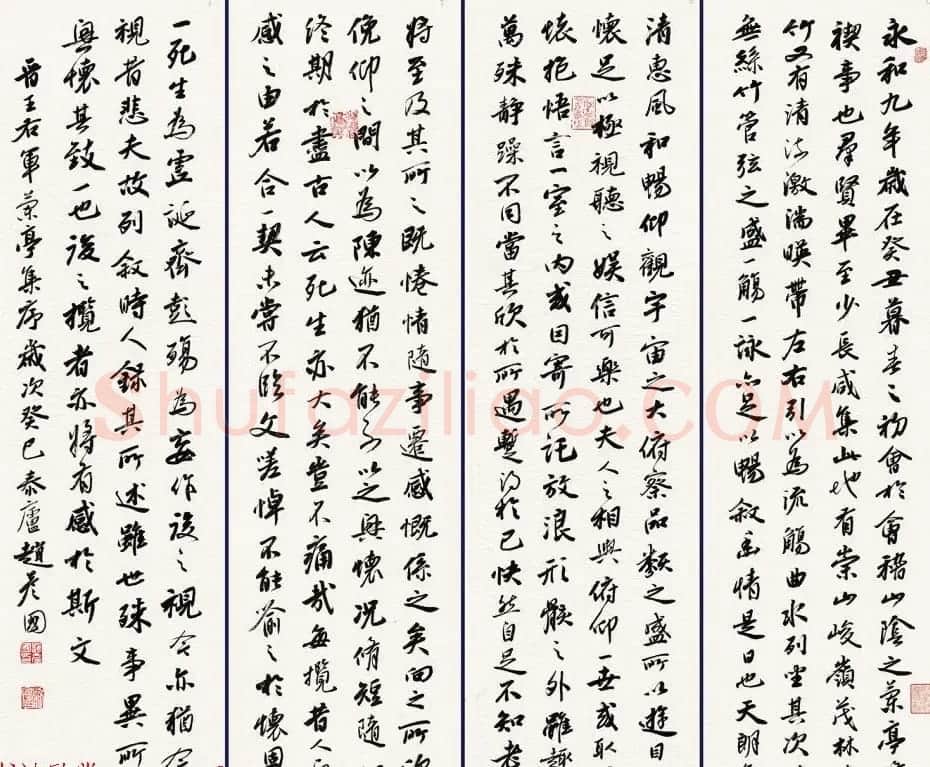 永和九年歲在癸丑暮春之初會於會稽山陰之蘭亭
禊事也羣賢畢至少長咸集此地有崇山峻嶺茂林
竹又有清流激湍暎帶左右引以為流觴曲水列坐其次
無絲竹管弦之盛一觴一詠亦足以暢敘幽情是日也天朗
清惠風和暢仰觀宇宙之大俯察品類之盛所以遊目
懷足以極視聽之娛信可樂也夫人之相與俯仰一世或取
懷抱悟言一室之內或因寄所託放浪形骸之外雖趣
萬殊靜躁不同當其欣於所遇暫得於己快然自足不知老
將至及其所之既惓情隨事遷感慨係之矣向之所欣
俛仰之間以為陳迹猶不能不以之興懷況脩短隨
終期於盡古人云死生亦大矣豈不痛哉每攬昔人
感之由若合一契未嘗不臨文嗟悼不能喻之於懷固
一死生為虛誕齊彭殤為妄作後之視今亦猶今
視昔悲夫故列敘時人錄其所述雖世殊事異所
興懷其致一也後之攬者亦將有感於斯文
晉王右軍蘭亭集序歲次癸巳泰廬趙彥國
Shufaziliao.com